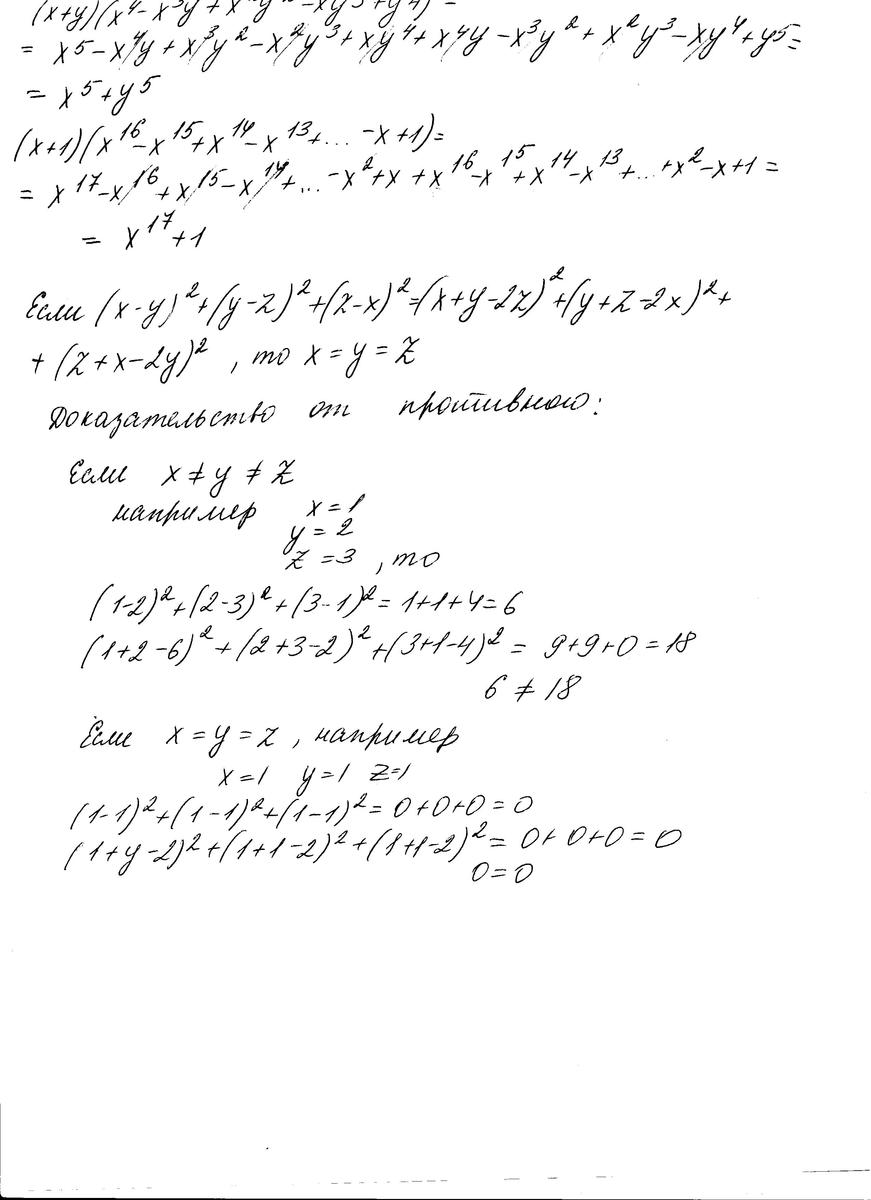 (x+y)(x⁴-x³y+x²y²-xy³+y⁴)=
= x⁵-x⁴y+x³y²-x²y³+xy⁴+x⁴y-x³y²+x²y³-xy⁴+y⁵=
= x⁵+y⁵
(x+1)(x¹⁶-x¹⁵+x¹⁴-x¹³+... -x+1)=
= x¹⁷-x¹⁶+x¹⁵-x¹⁴+...-x²+x+x¹⁶-x¹⁵+x¹⁴-x¹³+...+x²-x+1=
= x¹⁷+1
Если (x-y)²+(y-z)²+(z-x)²=(x+y-2z)²+(y+z-2x)²+
+(z+x-2y)², то x=y=z
Доказательство от противного:
Если x≠y≠z
например x=1
y=2
z=3, то
(1-2)²+(2-3)²+(3-1)²=1+1+4=6
(1+2-6)²+(2+3-2)²+(3+1-4)²= 9+9+0=18
6≠18
Если x=y=z, например
x=1 y=1 z=1
(1-1)²+(1-1)²+(1-1)²=0+0+0=0
(1+y-2)²+(1+1-2)²+(1+1-2)²=0+0+0=0
0=0